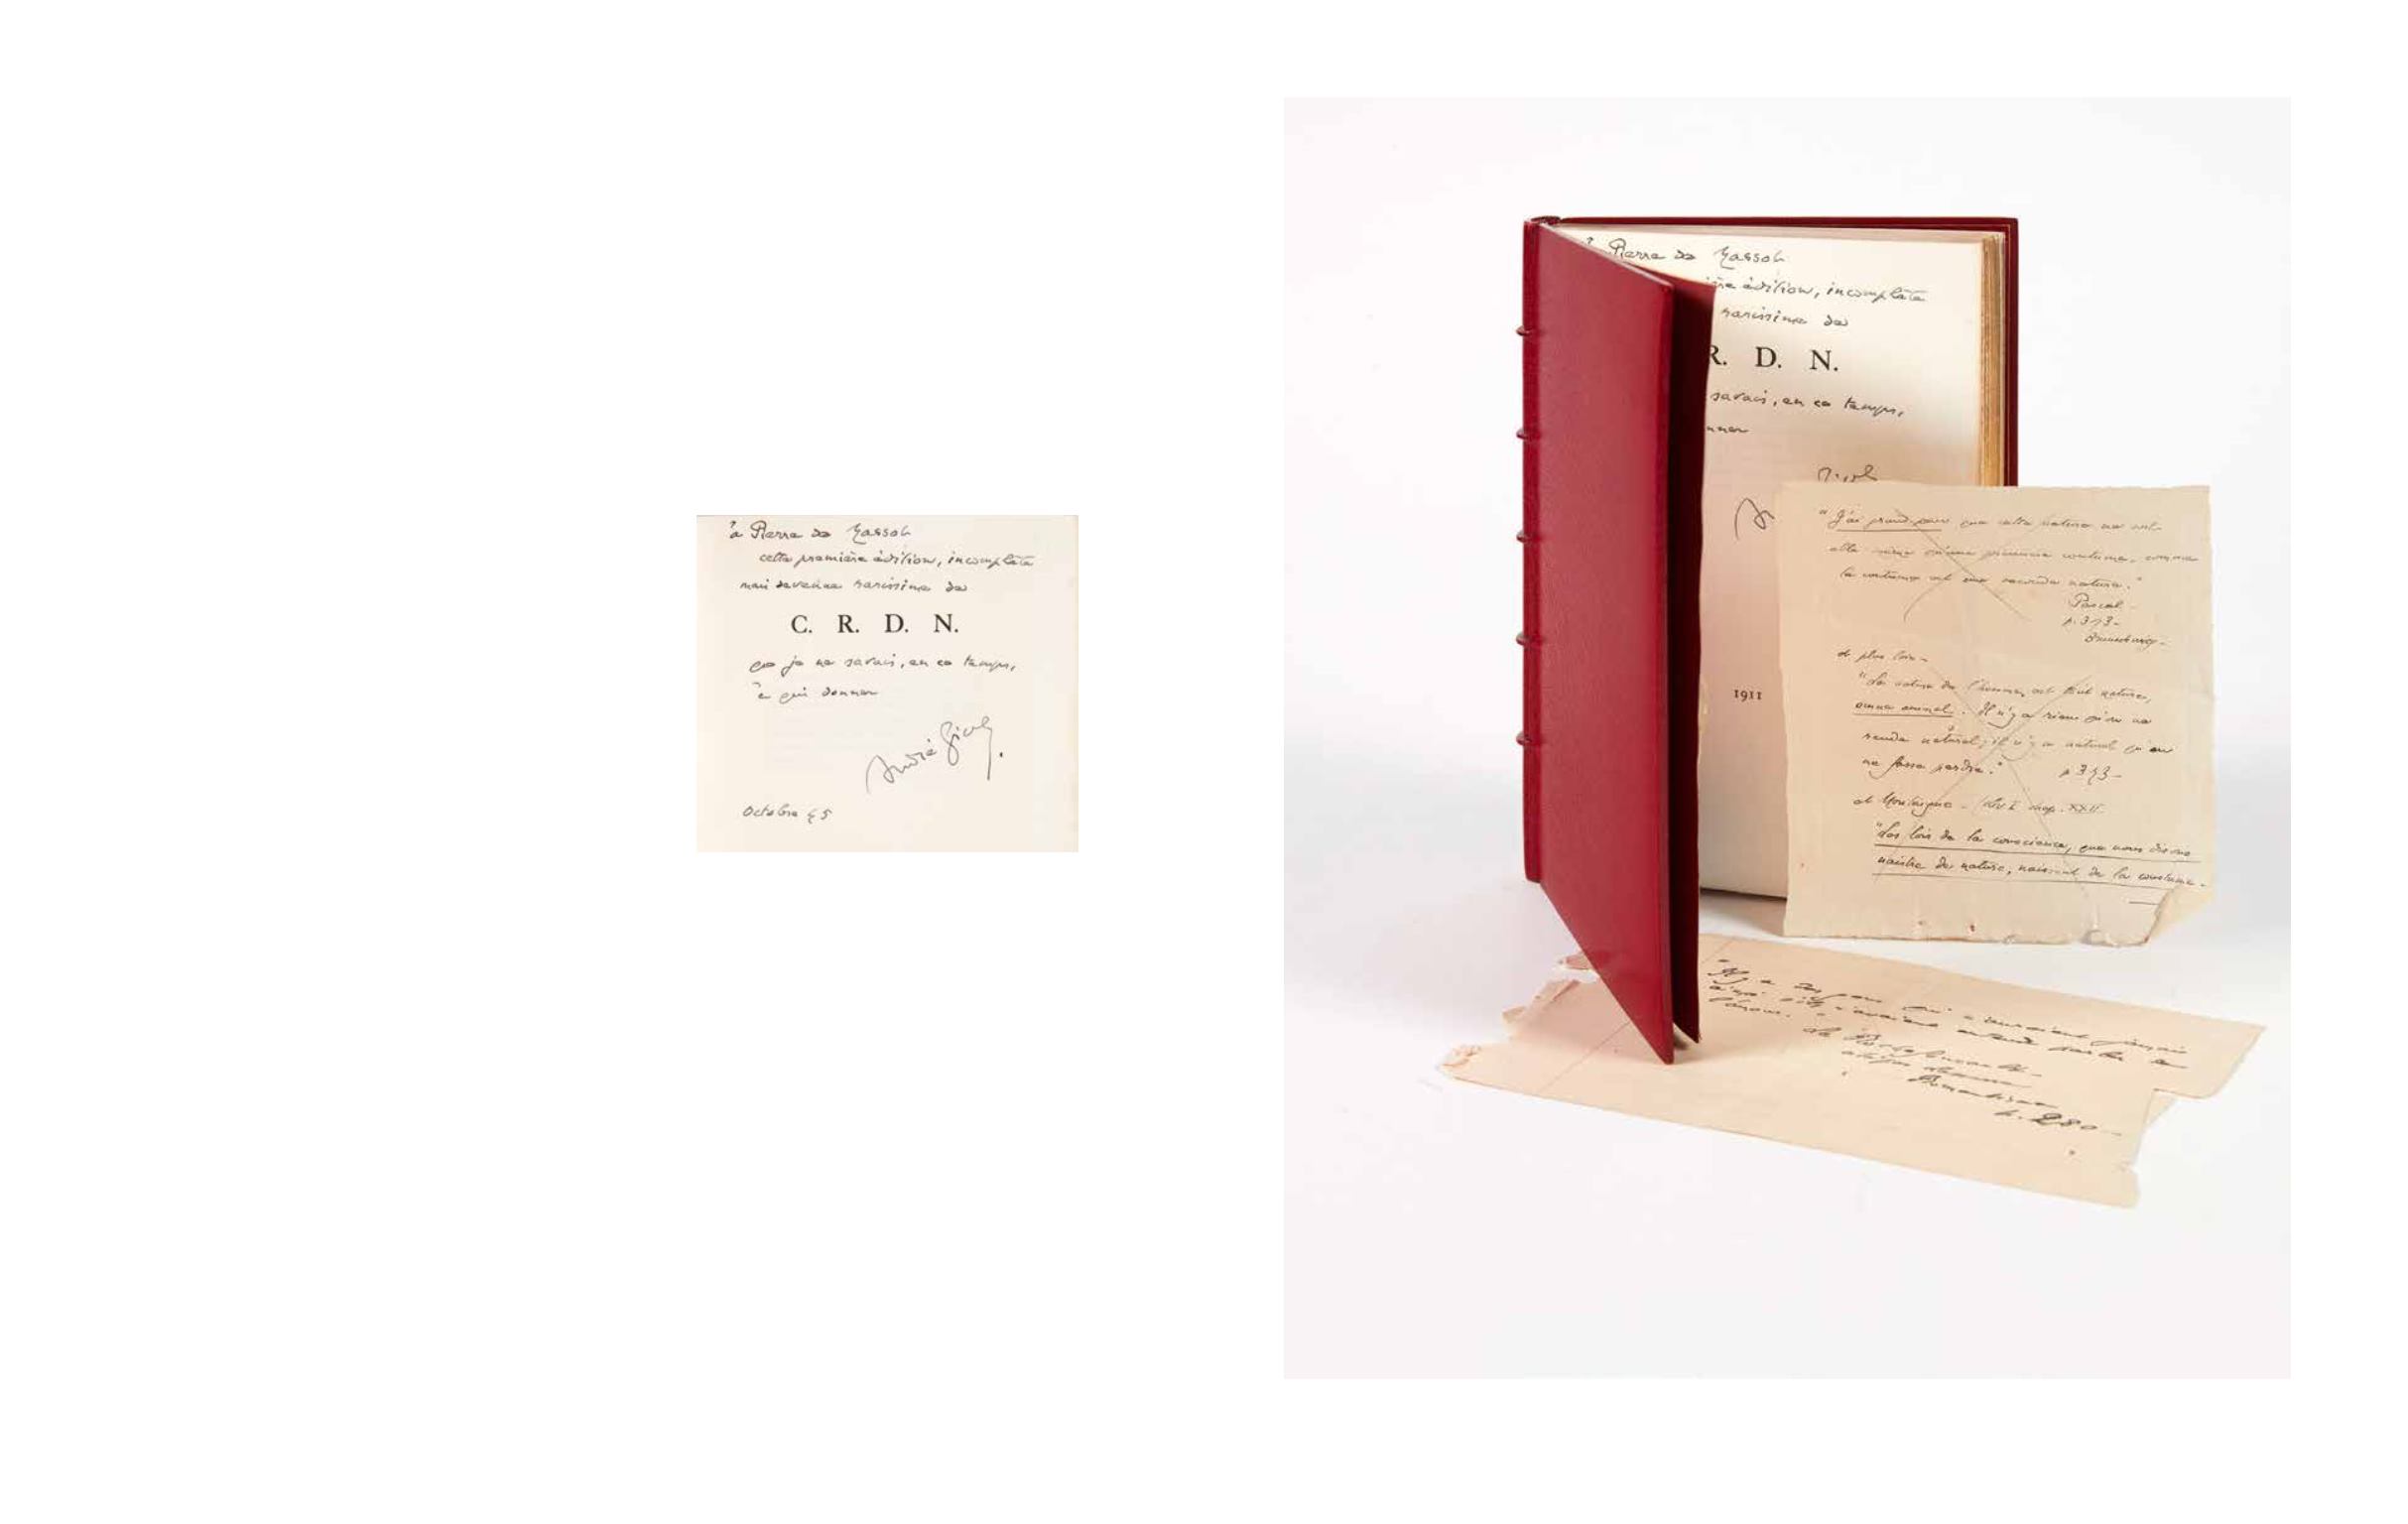 à Pierre de Massot
cette première édition, incomplète
mais devenue rarissime de
C. R. D. N.
que je ne savais, en ce temps,
à qui donner
André Gide.
Octobre 45
Pierre de Massot
édition, incomplète
rarissime de
R. D. N.
savais, en ce temps,
1911
"J'ai grand peur que cette nature ne soit
elle-même qu'une première coutume, comme
la coutume est une seconde nature."
Pascal -
p. 373 -
Brunschvicg -
et plus loin -
"La nature de l'homme est tout nature,
omne animal. Il n'y a rien qu'on ne
rende naturel; il n'y a naturel qu'on
ne fasse perdre."
et Montaigne - Liv I chap. XXII
"Les lois de la conscience, que nous disons
naistre de nature, naissent de la coustume -
"Il y a des gens qui n'auraient jamais
aimé s'ils n'avaient entendu parler de
l'amour."
La Rochefoucauld -
p. 280 -